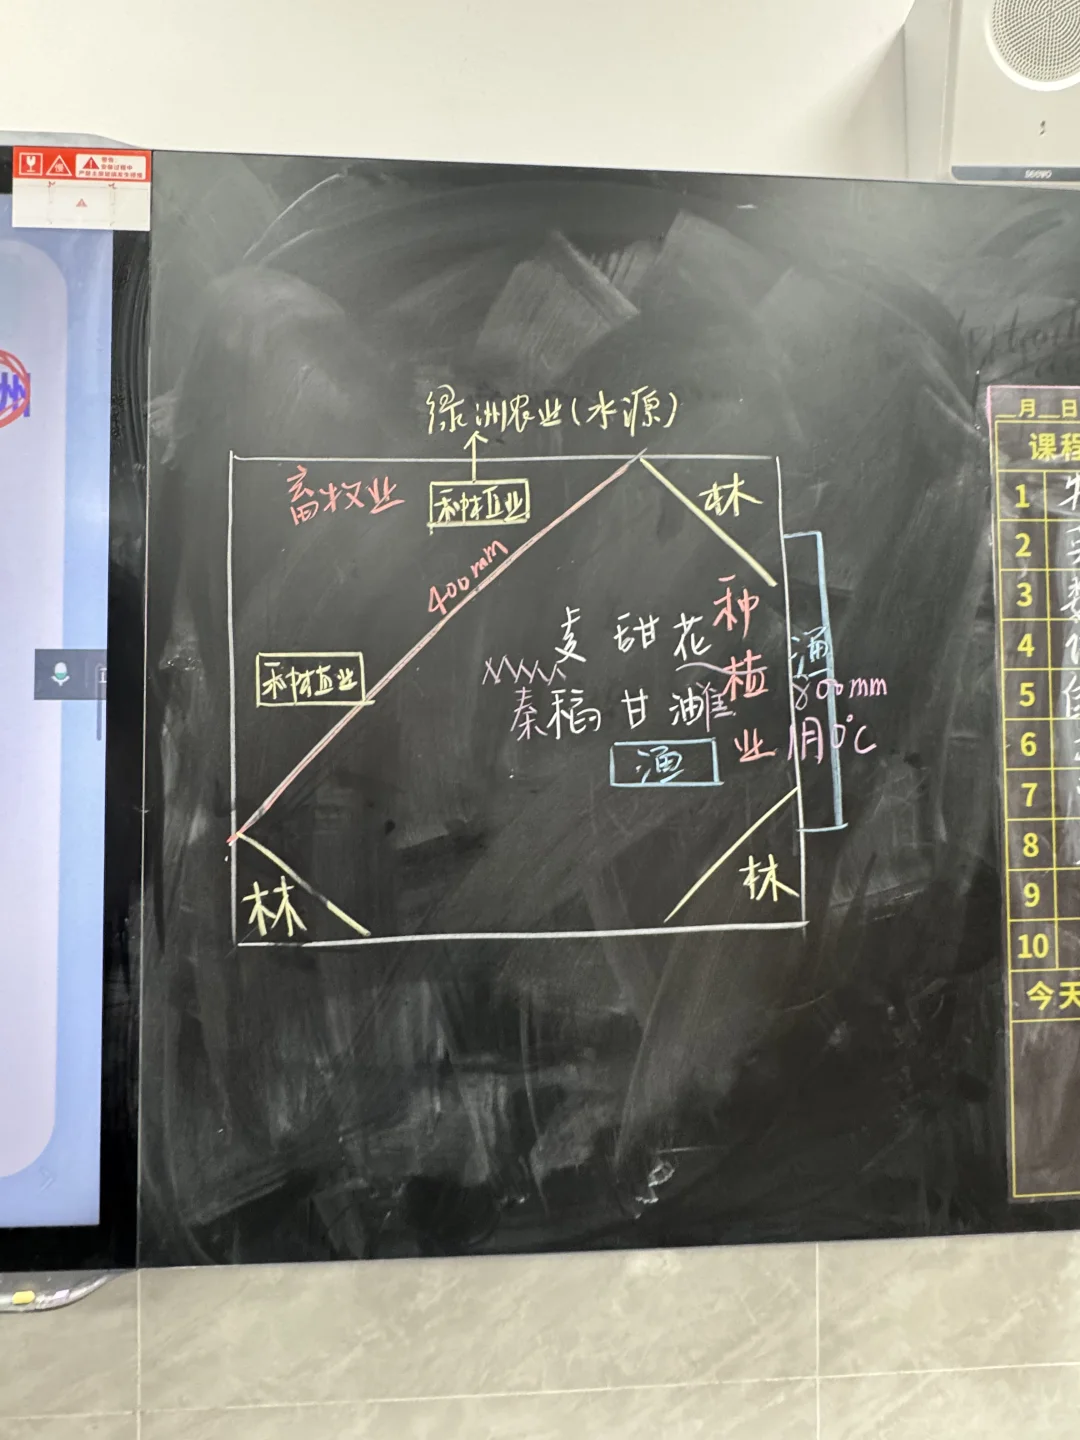 绿洲农业(水源)
畜牧业
种植业
林
400mm
种植业
麦 甜 花
秦 稻 甘 油
种植业
渔
渔
800mm
1月0℃
林
林
州
月 日
课程
1
2
3
4
5
6
7
8
9
10
今天
seewo